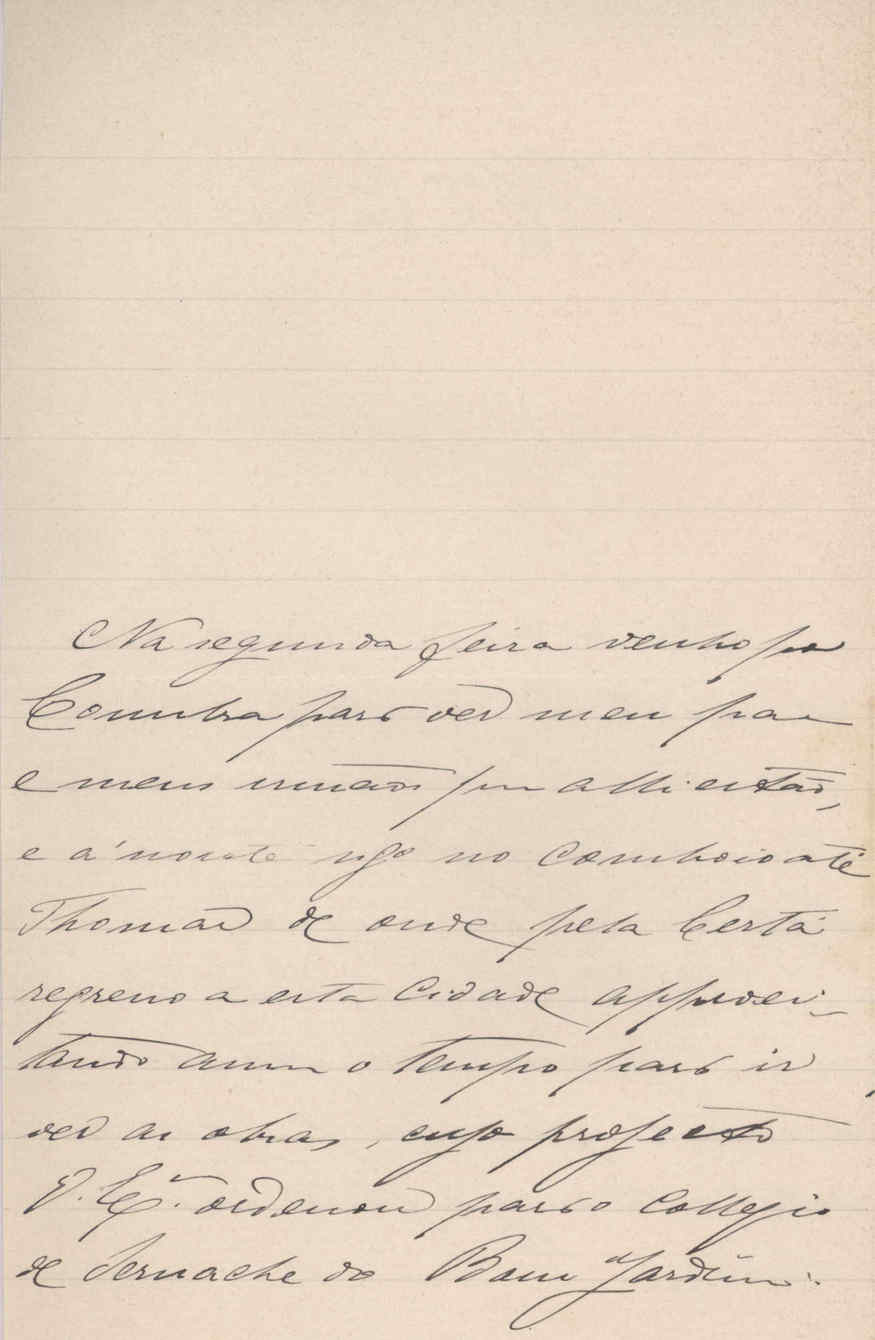 Na segunda feira venho por
Coimbra para ver meu pae
e meus irmãos que alli estão,
e á noute sigo no comboio até
Thomar de onde pela Certã
regresso a esta cidade aprovei-
tando assim o tempo para ir
ver as obras, cujo projecto
V. Exª. ordenou para o Collegio
de Sernache do Bom Jardim.